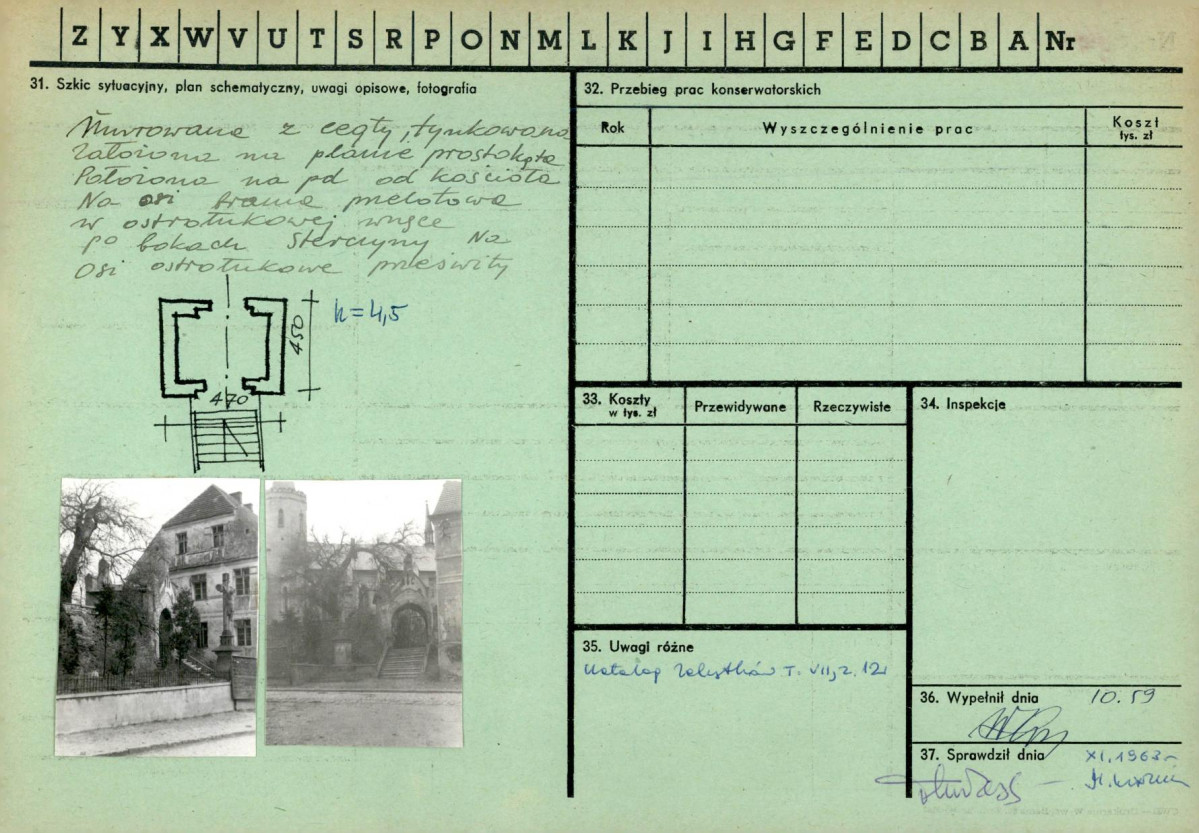 Z Y X W V U T S R P O N M L K J I H G F E D C B A Nr
31. Szkic sytuacyjny, plan schematyczny, uwagi opisowe, fotografia
Murowana z cegły, tynkowana
założona na planie prostokąta
Położona na pd od kościoła
Na osi brama przelotowa
w ostrołukowej wnęce
po bokach sterczyny Na
osi ostrołukowe prześwity
h=4,5
450
470
32. Przebieg prac konserwatorskich
Rok
Wyszczególnienie prac
Koszt
tys. zł
33. Koszty
w tys. zł
Przewidywane
Rzeczywiste
34. Inspekcje
35. Uwagi różne
Katalog Zabytków T. VII, z. 12
36. Wypełnił dnia 10.59
37. Sprawdził dnia XI.1963